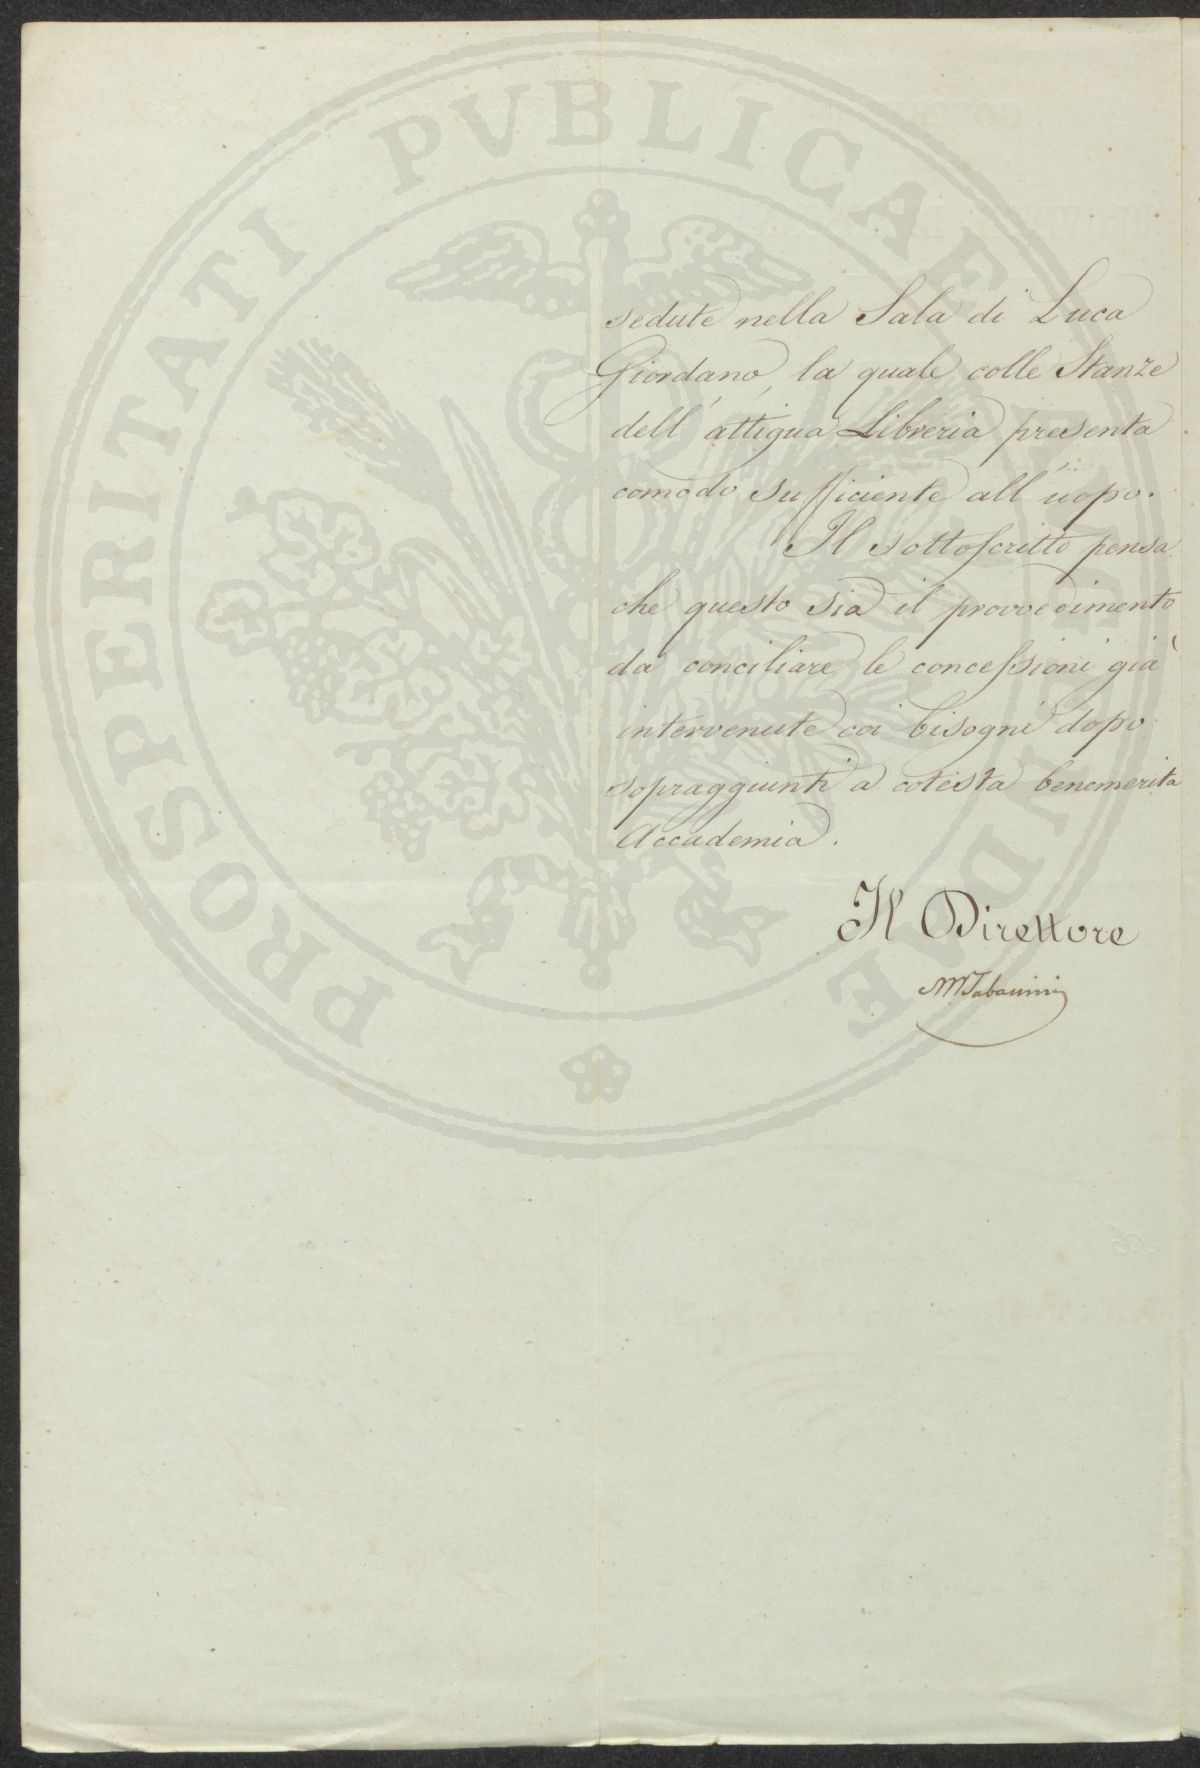 PROSPERITATI PVBLICAE AVGENDAE
sedute nella Sala di Luca
Giordano, la quale colle Stanze
dell' attigua Libreria presenta
comodo sufficiente all' uopo.
Il sottoscritto pensa
che questo sia il provvedimento
da conciliare le concessioni già
intervenute coi bisogni dopo
sopraggiunti a cotesta benemerita
Accademia.
Il Direttore
M Tabarrini